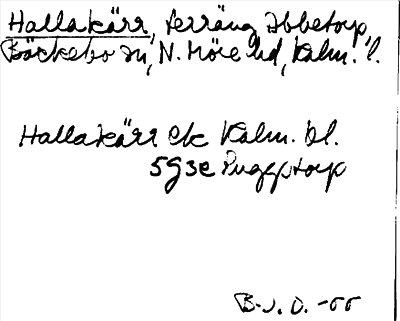 Hallakärr, terräng Abbetorp,
Bäckebo sn, N. Möre hd, Kalm. l.
Hallakärr ek Kalm. bl.
5g3e Ruggstorp
B.J.O. -55